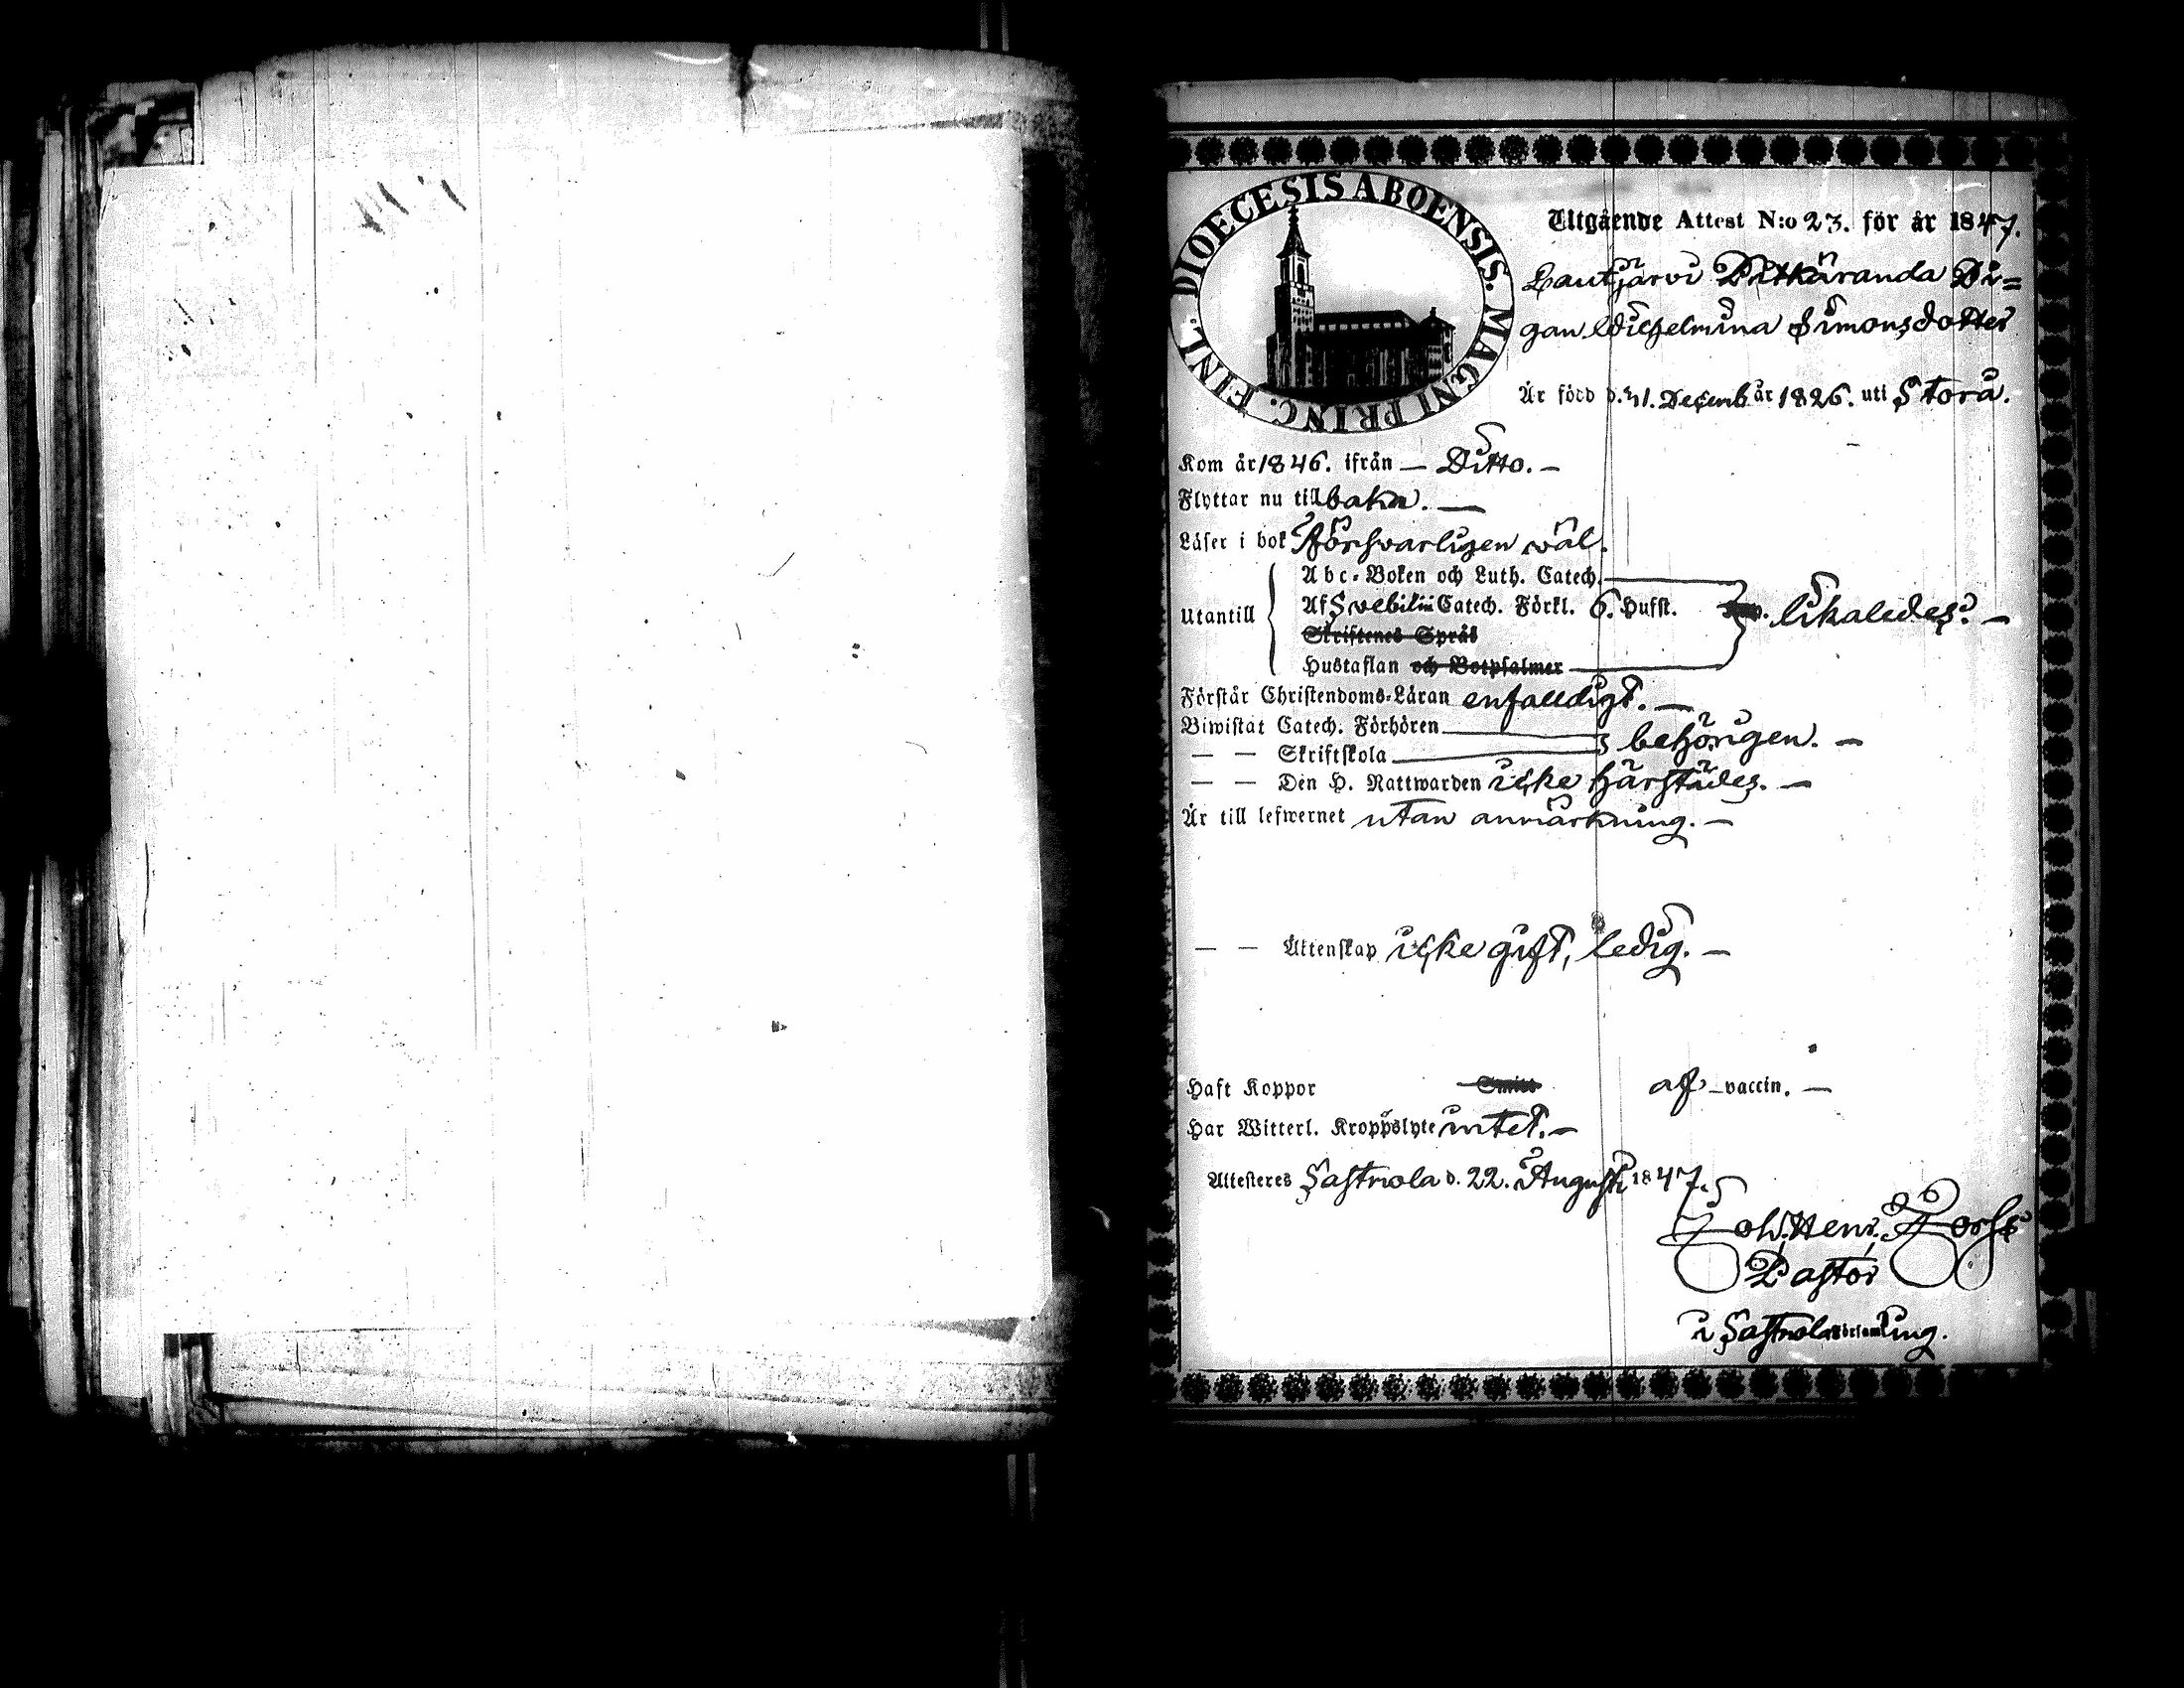 DIOECESIS ABOENSIS. MAGNI PRINC. FINL.
Utgående Attest N:o 23. för år 1847.
Lautjärvi Pitkäranda Pi=
gan Wilhelmina Simonsdotter
Är född d. 31. Decemb år 1826. uti Storå.
Kom år 1846. ifrån — Ditto. —
Flyttar nu till baka. —
Läser i bok försvarligen wäl.
Utantill
Abc-Boken och Luth. Catech.
Af Svebilii Catech. Förkl. 6. Hufst. likaledes. —
Skriftenes Språk
Hustaflan och Botpsalmer
Förstår Christendoms-Läran enfalldigt. —
Biwistat Catech. Förhören
— — Skriftskola behörigen. —
— — Den H. Nattwarden icke härstädes. —
Är till lefwernet utan anmärkning. —
— — Äktenskap icke gift, ledig. —
Haft Koppor af vaccin. —
Har Witterl. Kroppslyte intet. —
Attesteres Sastmola d. 22. Augusti 1847.
Joh. Henr. Forss
Pastor
i Sastmola Församling.